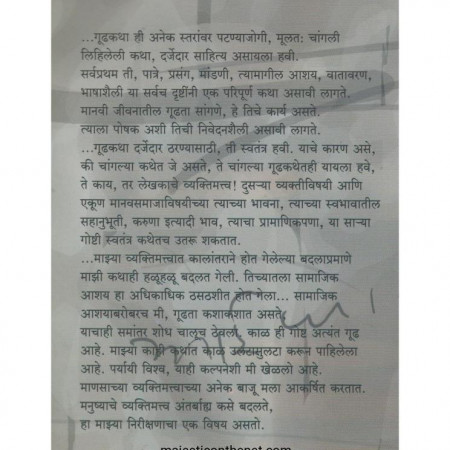 ...गूढकथा ही अनेक स्तरांवर पटण्याजोगी, मूलत: चांगली
लिहिलेली कथा, दर्जेदार साहित्य असायला हवी.
सर्वप्रथम ती, पात्रे, प्रसंग, मांडणी, त्यामागील आशय, वातावरण,
भाषाशैली या सर्वच दृष्टींनी एक परिपूर्ण कथा असावी लागते.
मानवी जीवनातील गूढता सांगणे, हे तिचे कार्य असते.
त्याला पोषक अशी तिची निवेदनशैली असावी लागते.
...गूढकथा दर्जेदार ठरण्यासाठी, ती स्वतंत्र हवी. याचे कारण असे,
की चांगल्या कथेत जे असते, ते चांगल्या गूढकथेतही यायला हवे,
ते काय, तर लेखकाचे व्यक्तिमत्त्व! दुसऱ्या व्यक्तीविषयी आणि
एकूण मानवसमाजाविषयीच्या त्याच्या भावना, त्याच्या स्वभावातील
सहानुभूती, करुणा इत्यादी भाव, त्याचा प्रामाणिकपणा, या साऱ्या
गोष्टी स्वतंत्र कथेतच उतरू शकतात.
...माझ्या व्यक्तिमत्त्वात कालांतराने होत गेलेल्या बदलाप्रमाणे
माझी कथाही हळूहळू बदलत गेली. तिच्यातला सामाजिक
आशय हा अधिकाधिक ठसठशीत होत गेला... सामाजिक
आशयाबरोबरच मी, गूढता कशाकशात असते,
याचाही समांतर शोध चालूच ठेवला. काळ ही गोष्ट अत्यंत गूढ
आहे. माझ्या काही कथांत काळ उलटासुलटा करून पाहिलेला
आहे. पर्यायी विश्व, याही कल्पनेशी मी खेळलो आहे.
माणसाच्या व्यक्तिमत्त्वाच्या अनेक बाजू मला आकर्षित करतात.
मनुष्याचे व्यक्तिमत्त्व अंतर्बाह्य कसे बदलते,
हा माझ्या निरीक्षणाचा एक विषय असतो.